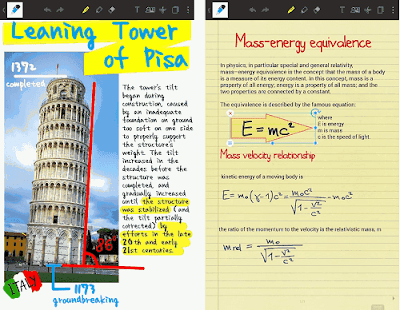 Leaning Tower
of Pisa
1372
completed
The tower's tilt
began during
construction, caused
by an inadequate
foundation on ground
too soft on one side
to properly support
the structure's
weight. The tilt
increased in the
decades before the
structure was
completed, and
gradually increased
until the structure
was stabilized (and
the tilt partially
corrected) by
efforts in the late
20th and early
21st centuries.
86°
ITALY
1173
groundbreaking
Mass-energy equivalence
In physics, in particular special and general relativity,
mass-energy equivalence is the concept that the mass of a body
is a measure of its energy content. In this concept, mass is a
property of all energy; energy is a property of all mass; and the
two properties are connected by a constant.
The equivalence is described by the famous equation:
E = mc²
where
E is energy
m is mass
c is the speed of light.
Mass velocity relationship
kinetic energy of a moving body is
E = m₀(γ-1)c² = m₀c² / √(1 - v²/c²) - m₀c²
the ratio of the momentum to the velocity is the relativistic mass, m
m rel = m₀ / √(1 - v²/c²)